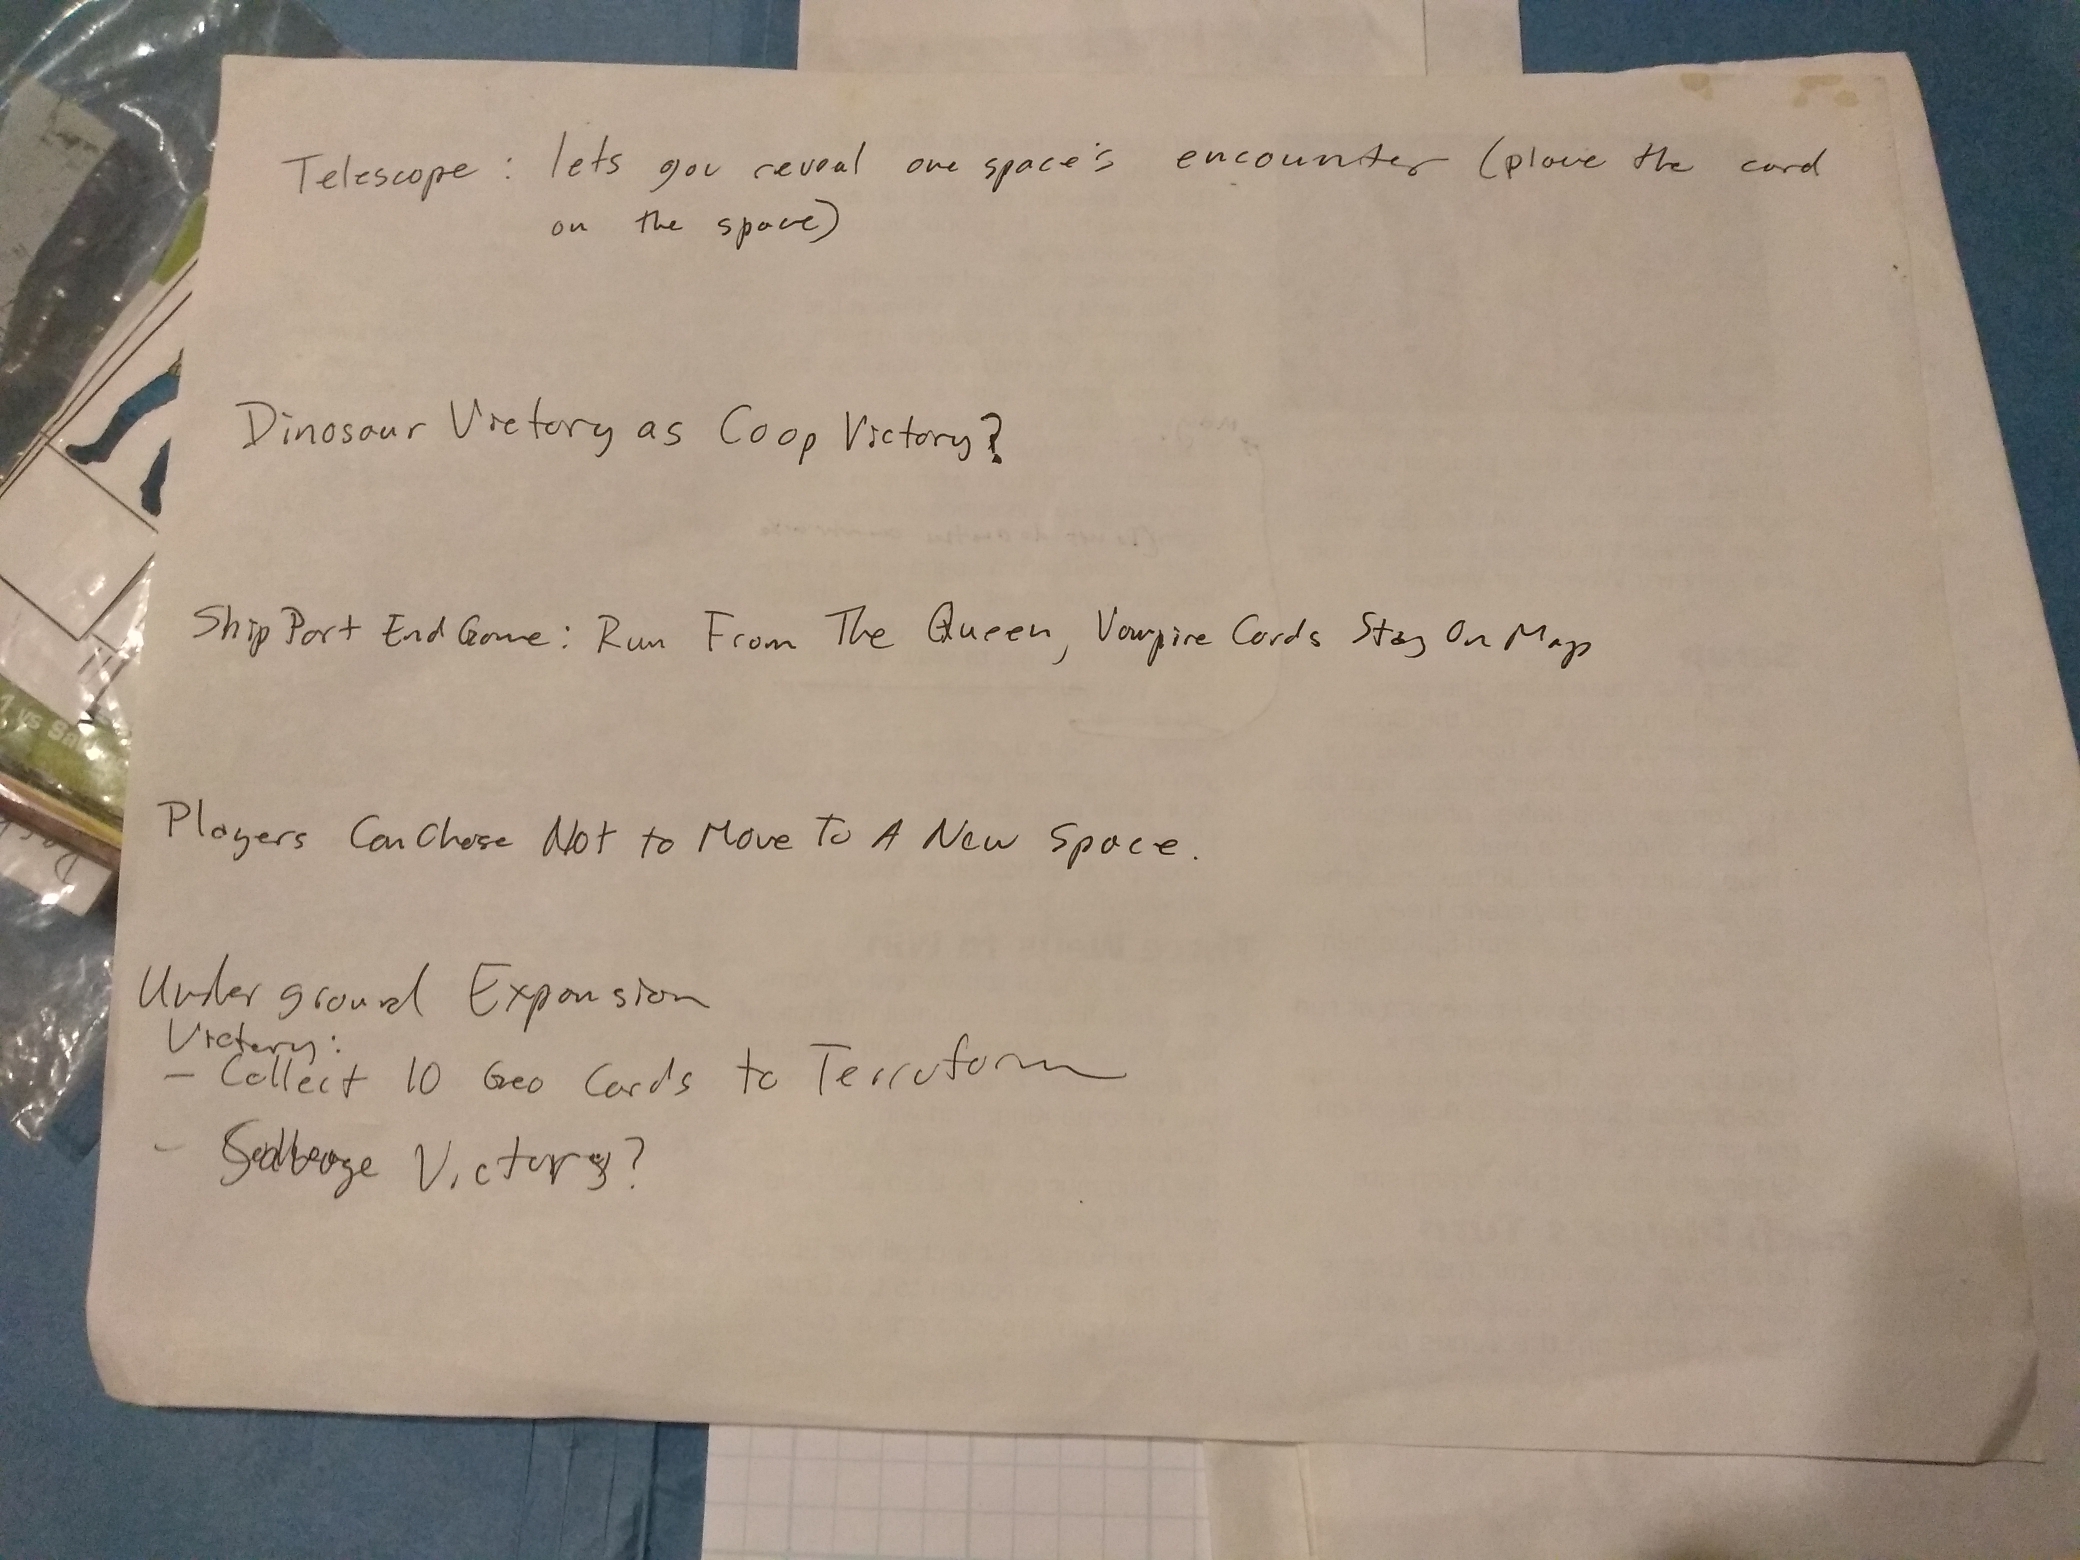 Telescope: lets you reveal one space's encounter (place the card
on the space)
Dinosaur Victory as Coop Victory?
Ship Port End Game: Run From The Queen, Vampire Cards Stay On Map
Players Can Chose Not to Move To A New Space.
Underground Expansion
Victory:
- Collect 10 Geo Cards to Terraform
- Victory?